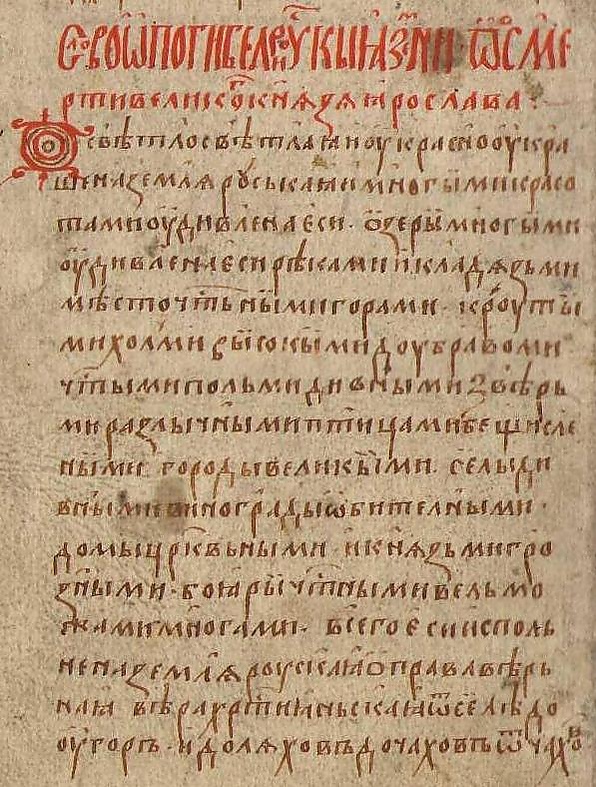 Слово ѡ погибели Рускыꙗ земли · ѡ сме
рти великоⷢ кнѧзѧ ꙗрослава :
О свѣтло свѣтлаꙗ и оукрасно оукра
шена землѧ руськаꙗ и многыми красо
тами оудивлена еси · ѡзеры многыми
оудивлена еси рѣками и кладѧзьми
мѣсточтⷭ҇ьными горами · кроуты
ми холми высокыми доубравоми
чтⷭ҇ыми польми дивными звѣрь
ми разлычными птицами бещисле
ными · городы великыми · селы ди
вными винограды ѡбителными ·
домы црк҃вьными · и кнѧзьми гро
зными · боꙗры чтⷭ҇ными вельмо
жами многами · всего еси исполь
нена землѧ роускаꙗ ѡ прававѣрь
наꙗ вѣра хрⷭ҇тиꙗньскаꙗ ѿселѣ до
оугоръ · и до лѧховъ до чаховъ ѿ чахоⷡ